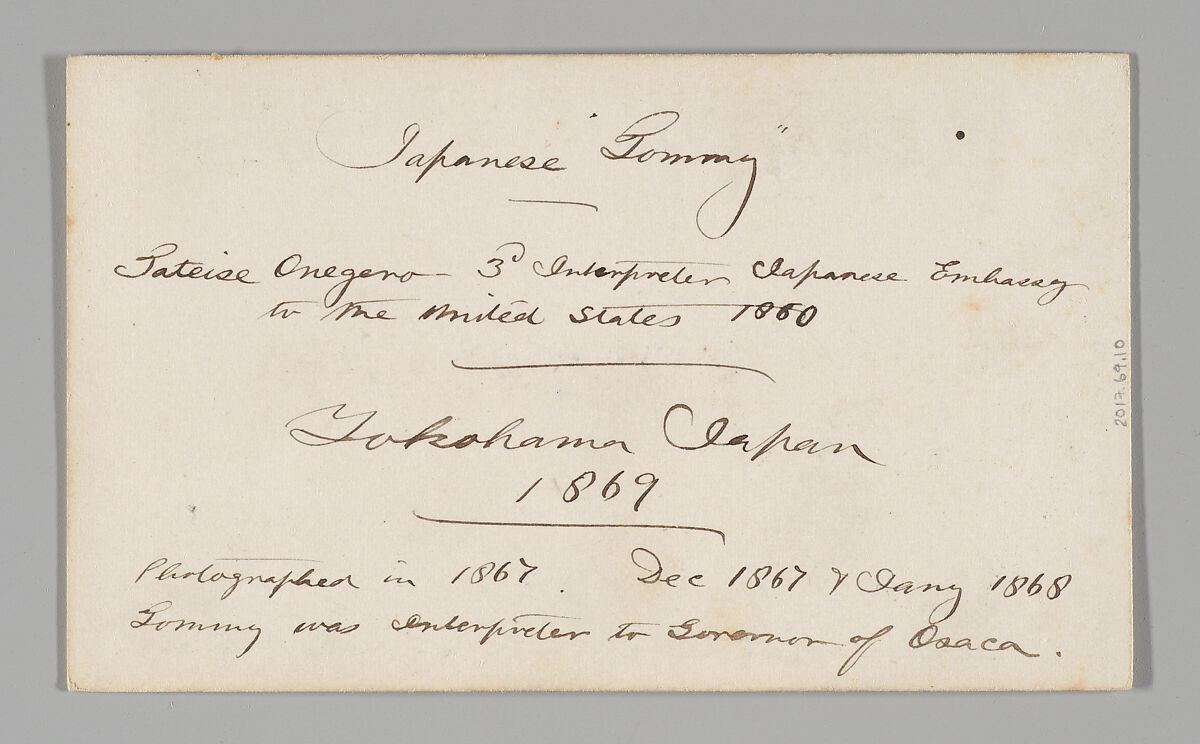 Japanese "Tommy"
Tateise Onegero - 3d Interpreter Japanese Embassy
to the United States 1860
Yokohama Japan
1869
Photographed in 1867. Dec 1867 & Jany 1868
Tommy was Interpreter to Governor of Osaca.
2017.69.10